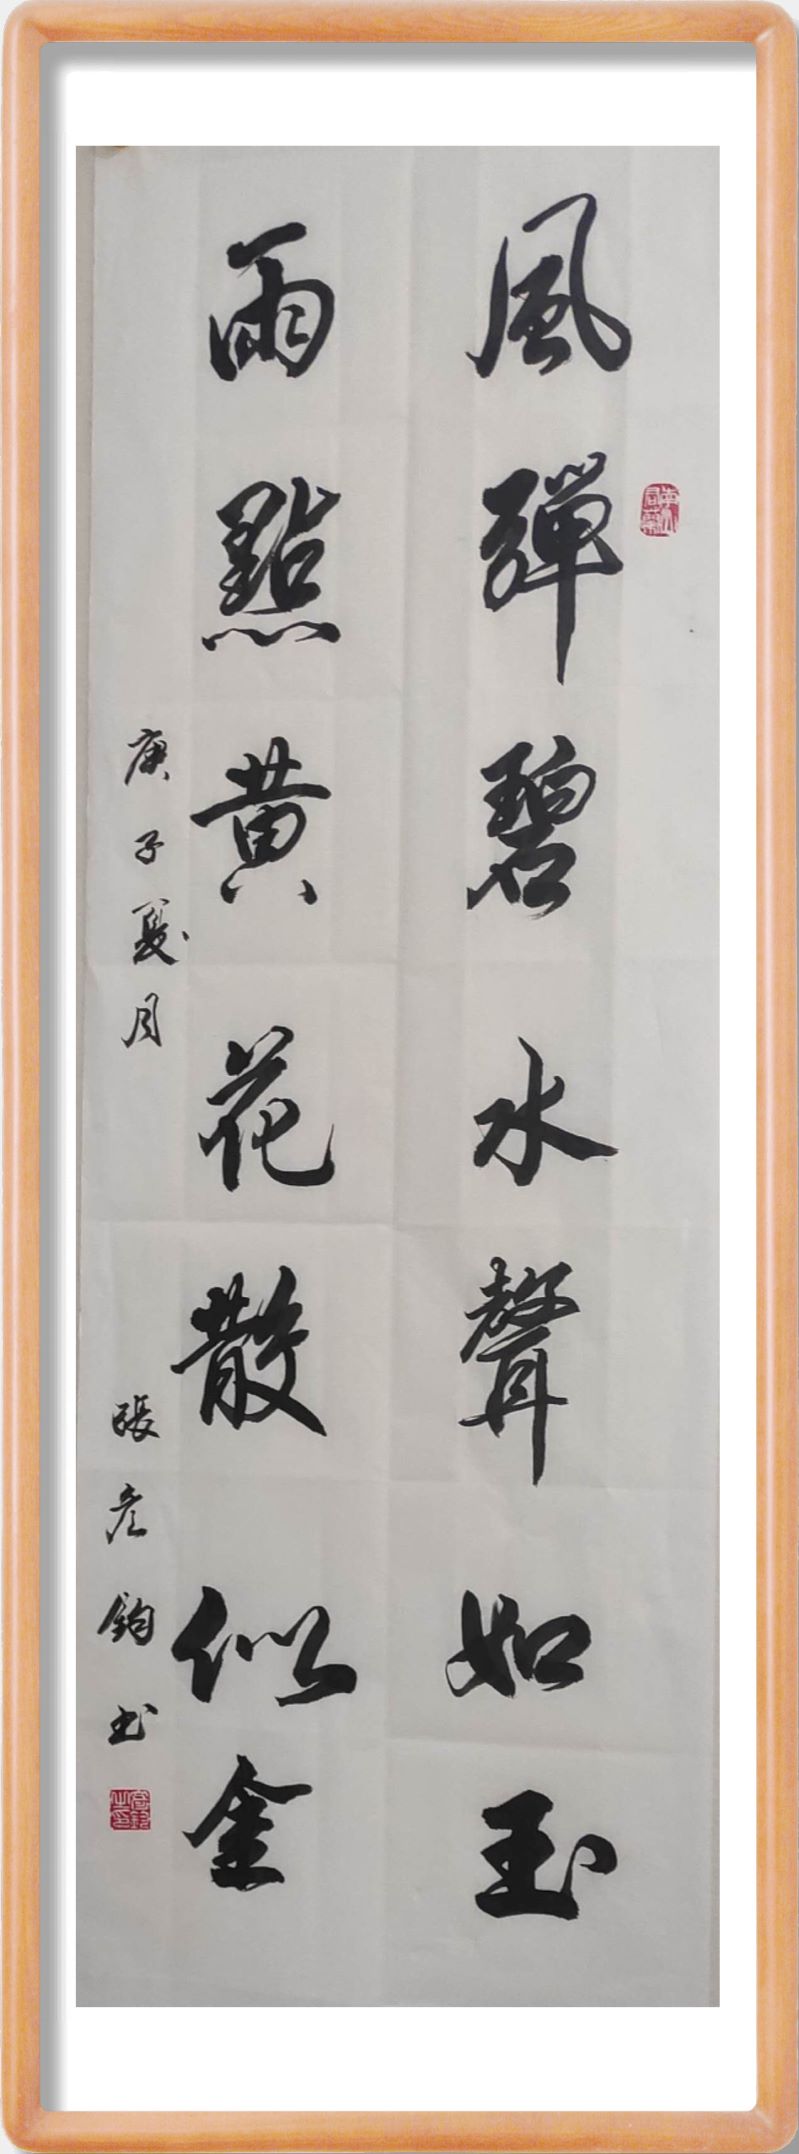 風弹碧水聲如玉
雨點黄花散似金
庚子夏月
張彦鈞书